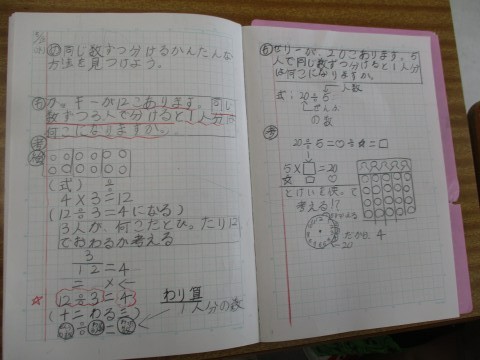 め同じ数ずつ分けるかんたんな
方法を見つけよう。
も クッキーが12こあります。同じ
数ずつ3人で分けると1人分は
何こになりますか。
考
(式)
4×3=12
(12÷3=4になる)
3人が、何こだとぴったり12
でおわるか考える
12÷3=4
わり算
1人分の数
も ゼリーが、20こあります。5
人で同じ数ずつ分けると1人分
は何こになりますか。
式:20÷5
人数
ぜんぶ
の数
考
20÷5=♡÷☆=□
5×□=20
とけいを使って
考える!?
だから4
20